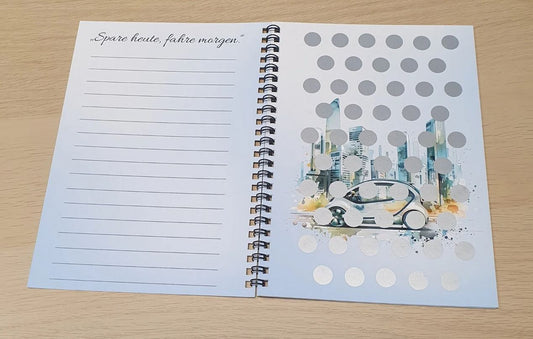 „Spare heute, fahre morgen.“